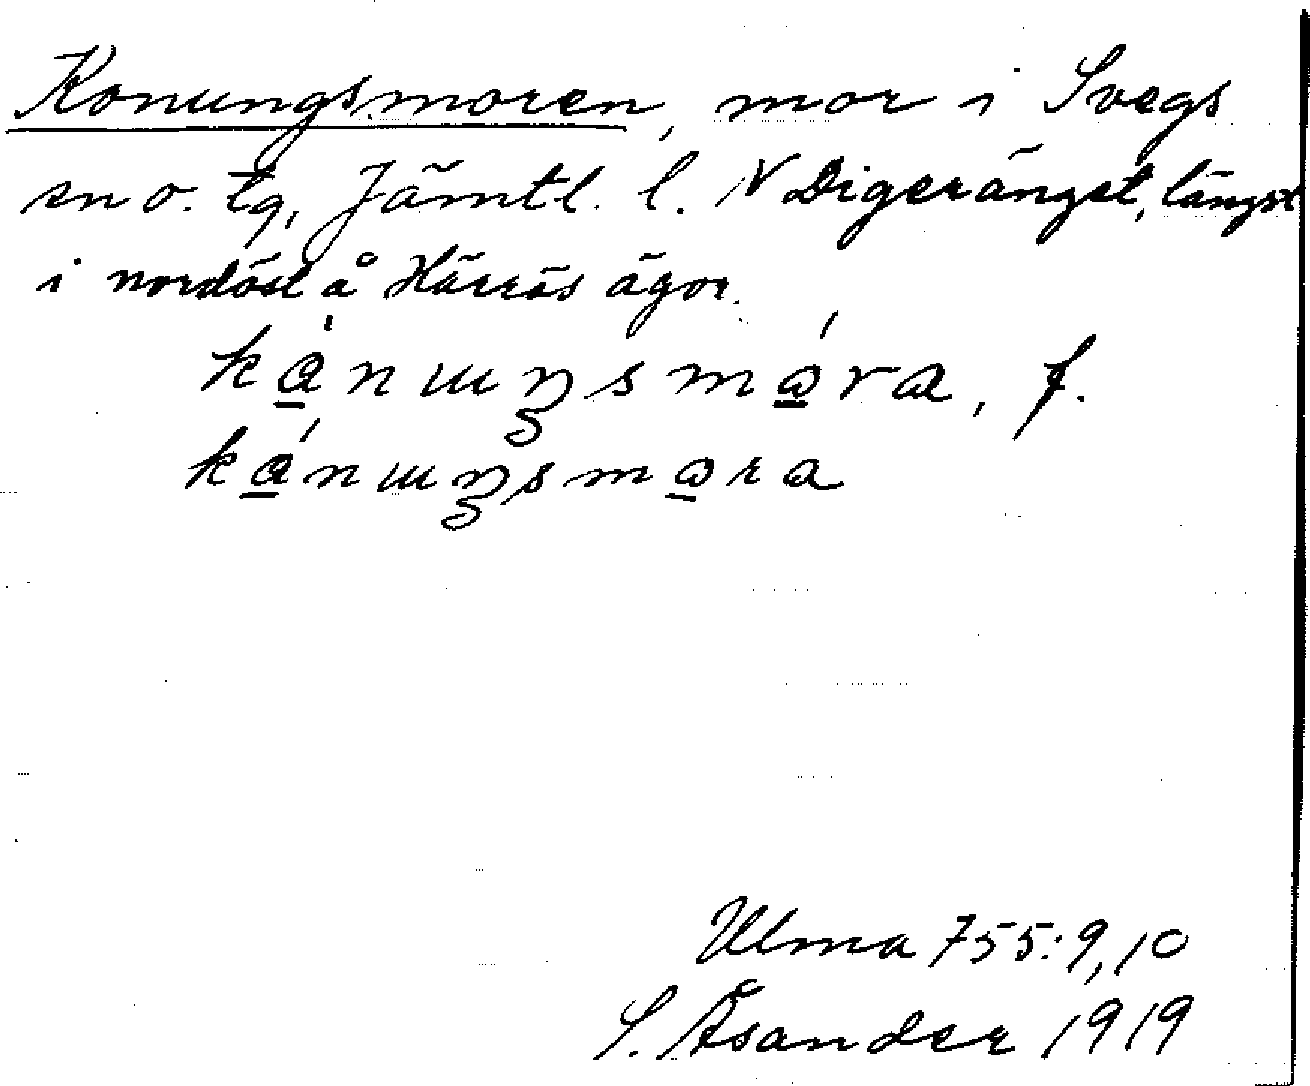 Konungsmoren, mor i Svegs
sn o. tg, Jämtl. l. N Digerängst, längst
i nordöst å Härrös ägor.
kȧ̱nɯŋsmó̱ra, f.
ká̱nɯŋsmo̱ra
Ulma 755:9,10
S. Åsander 1919